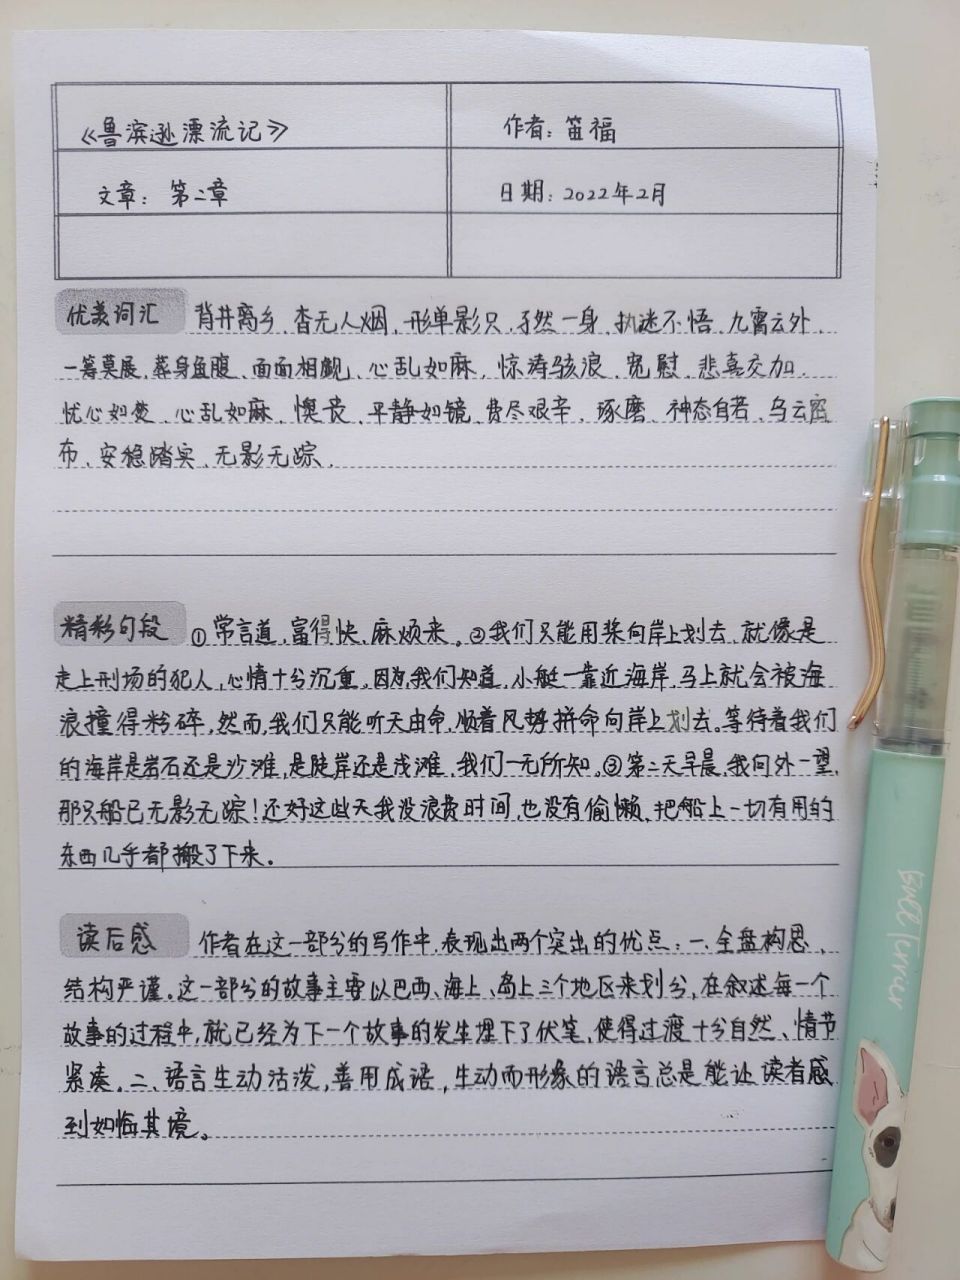 《鲁滨逊漂流记》
作者：笛福
文章：第二章
日期：2022年2月
优美词汇 背井离乡、杳无人烟、形单影只、孑然一身、执迷不悟、九霄云外、
一筹莫展、葬身鱼腹、面面相觑、心乱如麻、惊涛骇浪、宽慰、悲喜交加、
忧心如焚、心乱如麻、懊丧、平静如镜、费尽艰辛、琢磨、神态自若、乌云密
布、安稳踏实、无影无踪、
精彩句段 ①常言道，富得快，麻烦来。②我们只能用桨向岸上划去，就像是
走上刑场的犯人，心情十分沉重。因为，我们知道，小艇一靠近海岸，马上就会被海
浪撞得粉碎，然而，我们只能听天由命，顺着风势拼命向岸上划去。等待着我们
的海岸是岩石还是沙滩，是陡岸还是浅滩，我们一无所知。③第二天早晨，我向外一望，
那只船已无影无踪！还好这些天我没浪费时间，也没有偷懒，把船上一切有用的
东西几乎都搬了下来。
读后感 作者在这一部分的写作中，表现出两个突出的优点：一、全盘构思，
结构严谨。这一部分的故事主要以巴西、海上、岛上三个地区来划分，在叙述每一个
故事的过程中，就已经为下一个故事的发生埋下了伏笔，使得过渡十分自然、情节
紧凑。二、语言生动活泼，善用成语，生动而形象的语言总是能让读者感
到如临其境。
Bull Terrier